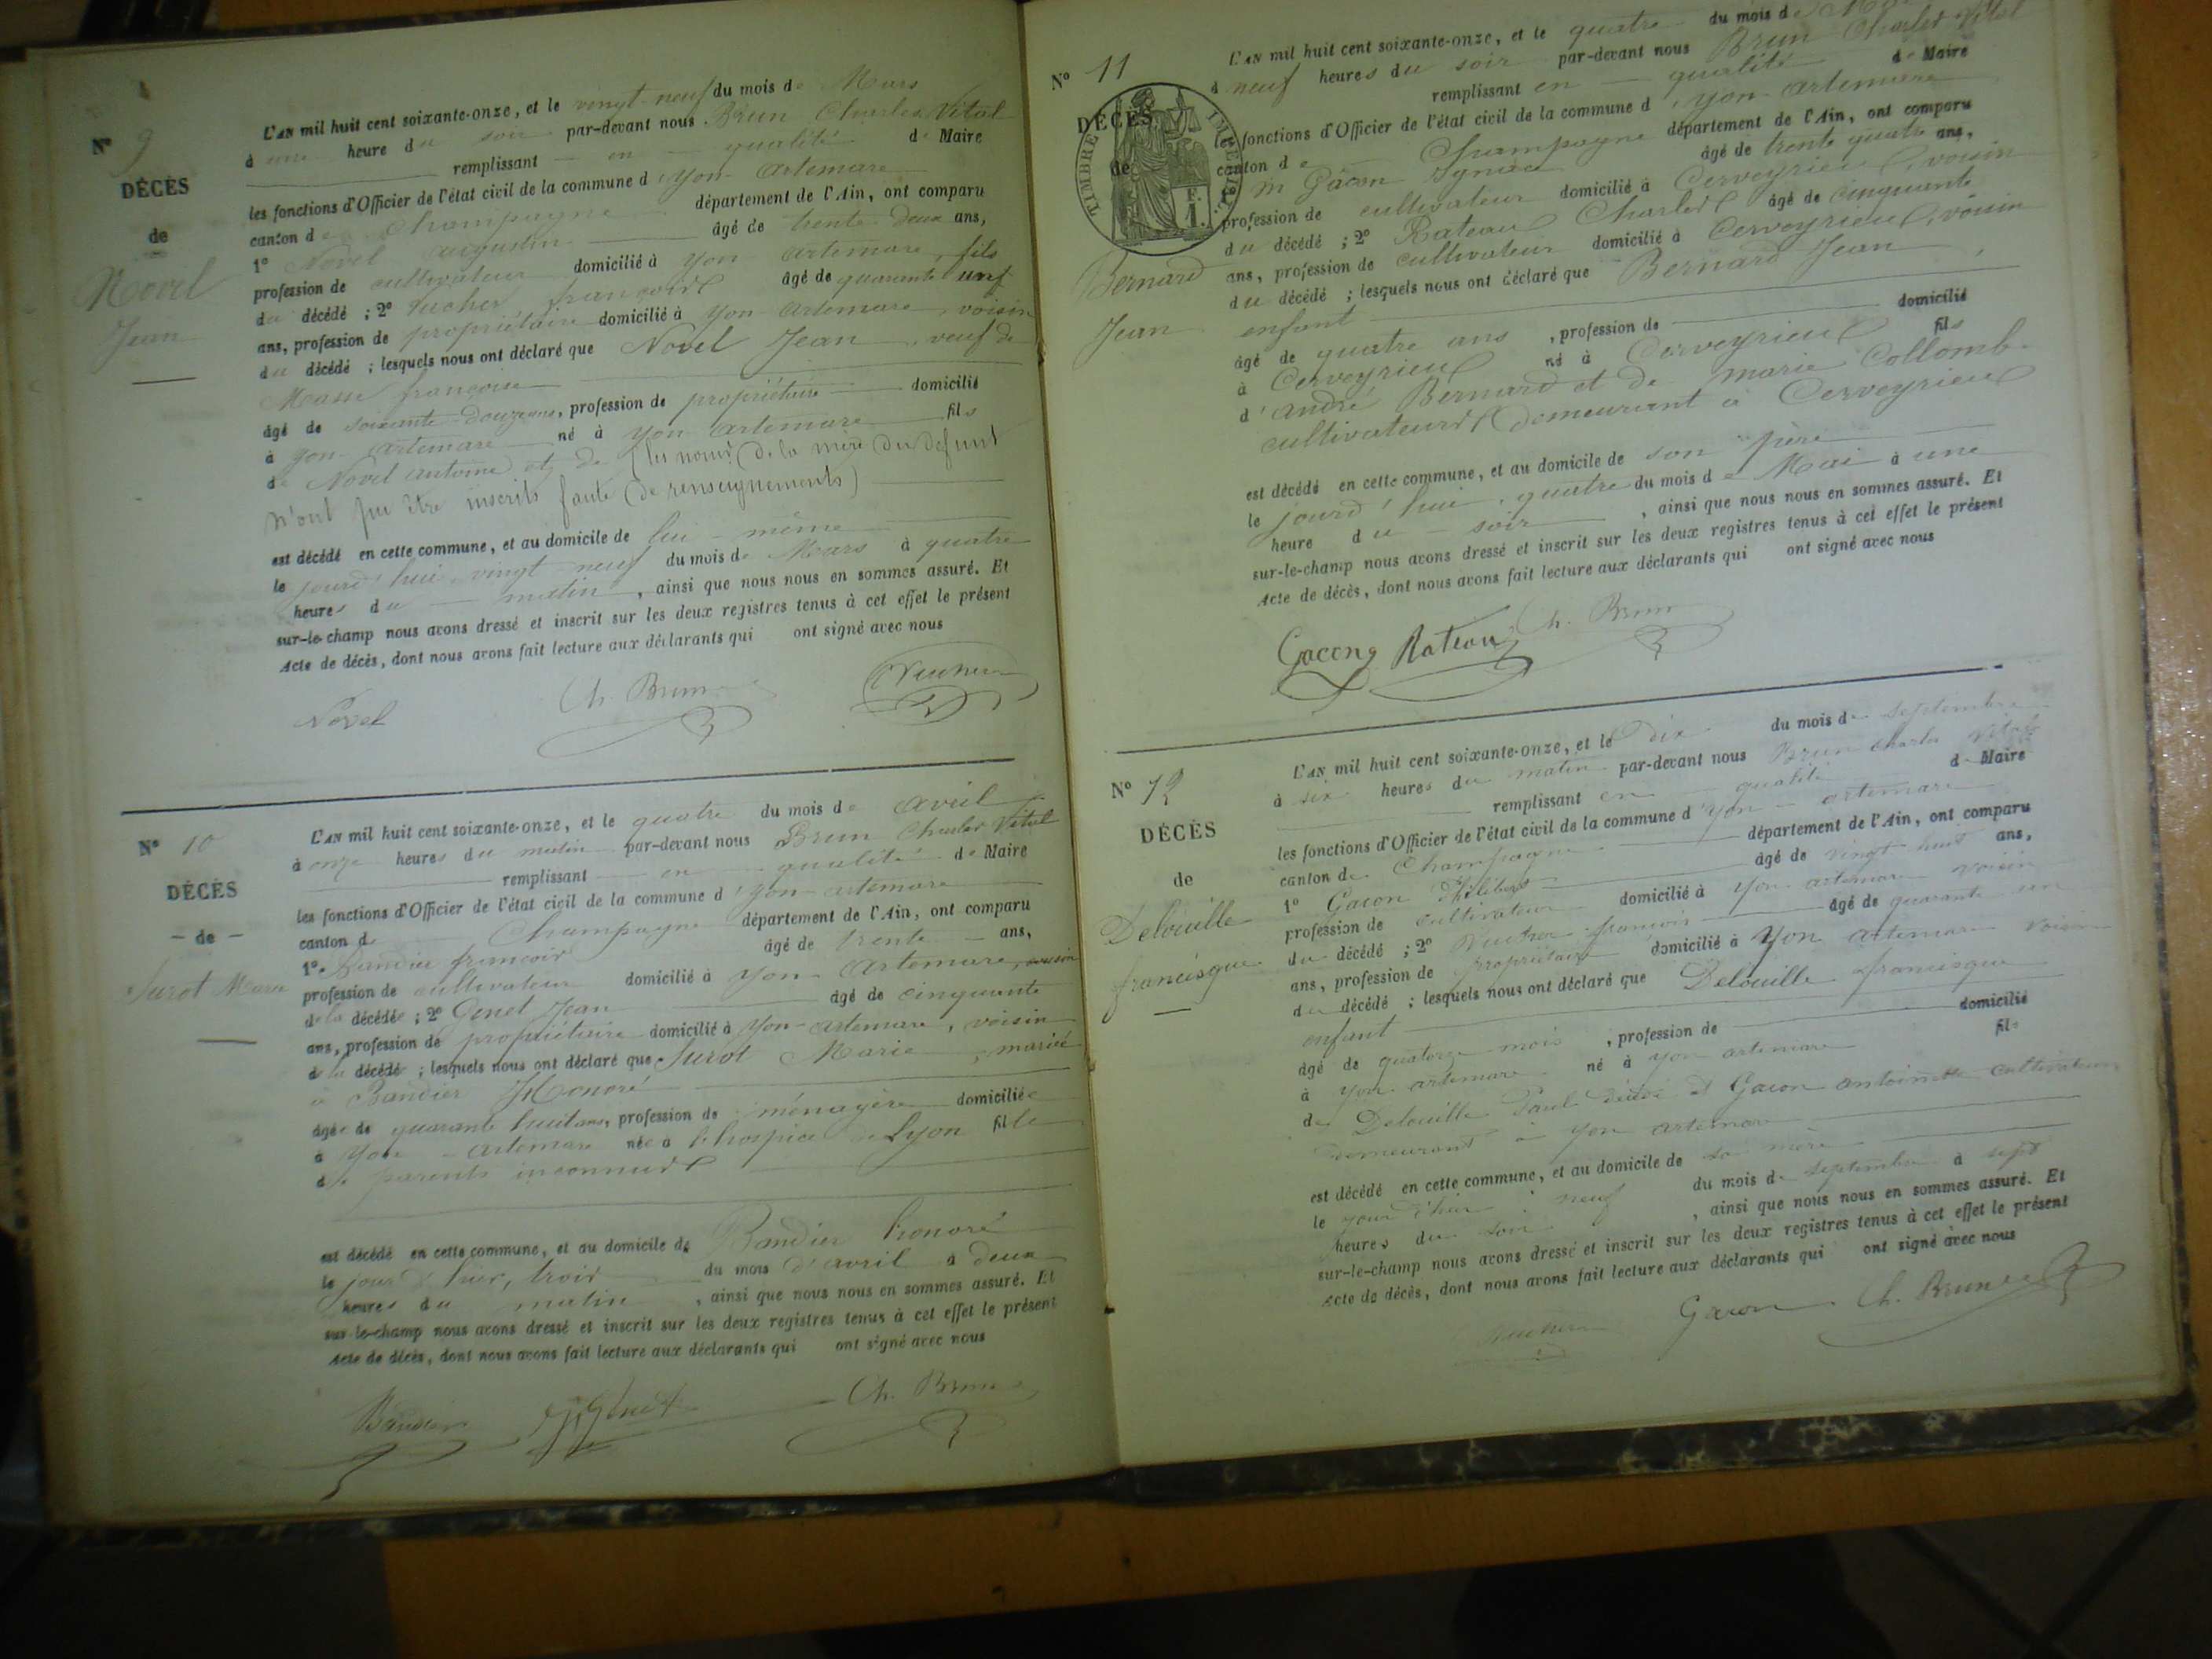 N° 9
DÉCÈS
de
Novel
Jean
L'AN mil huit cent soixante-onze, et le vingt-neuf du mois de Mars
à une heure du soir par-devant nous Brun Charles Vital
remplissant en qualité de Maire
les fonctions d'Officier de l'état civil de la commune d'yon-artemare
canton de Champagne département de l'Ain, ont comparu
1° Novel augustin âgé de trente-deux ans,
profession de cultivateur domicilié à yon artemare, fils
du décédé ; 2° françois âgé de quarante
ans, profession de propriétaire domicilié à yon artemare, voisin
du décédé ; lesquels nous ont déclaré que Novel Jean, veuf de
Masse françoise
âgé de soixante-douze ans, profession de propriétaire domicilié
à yon-artemare né à yon artemare fils
de Novel antoine et de (les noms de la mère du defunt
n'ont pu être inscrits faute de renseignements)
est décédé en cette commune, et au domicile de lui-même
le jourd'hui vingt neuf du mois de Mars à quatre
heures du matin, ainsi que nous nous en sommes assuré. Et
sur-le-champ nous avons dressé et inscrit sur les deux registres tenus à cet effet le présent
Acte de décès, dont nous avons fait lecture aux déclarants qui ont signé avec nous
Novel Ch. Brun
N° 10
DÉCÈS
- de -
Surot Marie
L'AN mil huit cent soixante-onze, et le quatre du mois de avril
à onze heures du matin par-devant nous Brun Charles Vital
remplissant en qualité de Maire
les fonctions d'Officier de l'état civil de la commune d'yon-artemare
canton de Champagne département de l'Ain, ont comparu
1° Bandier françois âgé de trente ans,
profession de cultivateur domicilié à yon-artemare, cousin
de la décédée ; 2° Genet Jean âgé de cinquante
ans, profession de propriétaire domicilié à yon-artemare, voisin
de la décédée ; lesquels nous ont déclaré que Surot Marie, mariée
à Bandier Honoré
âgée de quarante huit ans, profession de ménagère domiciliée
à yon-artemare née à l'hospice de Lyon fille
de parents inconnus
est décédé en cette commune, et au domicile de Bandier honoré
le jour d'hier, trois du mois d'avril à deux
heures du matin, ainsi que nous nous en sommes assuré. Et
sur-le-champ nous avons dressé et inscrit sur les deux registres tenus à cet effet le présent
Acte de décès, dont nous avons fait lecture aux déclarants qui ont signé avec nous
Bandier Genet Ch. Brun
N° 11
DÉCÈS
de
TIMBRE IMPERIAL
F.
1.
Bernard
Jean
L'AN mil huit cent soixante-onze, et le quatre du mois de
à neuf heures du soir par-devant nous Brun Charles Vital
remplissant en qualité de Maire
les fonctions d'Officier de l'état civil de la commune d'yon-artemare
canton de Champagne département de l'Ain, ont comparu
Gacon âgé de trente quatre ans,
profession de cultivateur domicilié à Cerveyrieu, voisin
du décédé ; 2° Rateau Charles âgé de cinquante
ans, profession de cultivateur domicilié à Cerveyrieu, voisin
du décédé ; lesquels nous ont déclaré que Bernard Jean
enfant
âgé de quatre ans, profession de domicilié
à Cerveyrieu né à Cerveyrieu fils
d'andré Bernard et de marie Collomb
cultivateurs demeurant à Cerveyrieu
est décédé en cette commune, et au domicile de son père
le jourd'hui, quatre du mois de Mai à une
heure du soir, ainsi que nous nous en sommes assuré. Et
sur-le-champ nous avons dressé et inscrit sur les deux registres tenus à cet effet le présent
Acte de décès, dont nous avons fait lecture aux déclarants qui ont signé avec nous
Gacong Rateau Ch. Brun
N° 12
DÉCÈS
de
Delouille
francisque
L'AN mil huit cent soixante-onze, et le dix du mois de septembre
à six heures du matin par-devant nous Brun Charles Vital
remplissant en qualité de Maire
les fonctions d'Officier de l'état civil de la commune d'yon-artemare
canton de Champagne département de l'Ain, ont comparu
1° Gacon Philibert âgé de vingt huit ans,
profession de cultivateur domicilié à yon artemare voisin
du décédé ; 2° françois âgé de quarante un
ans, profession de propriétaire domicilié à yon artemare voisin
du décédé ; lesquels nous ont déclaré que Delouille francisque
enfant
âgé de quatorze mois, profession de domicilié
à yon artemare né à yon artemare fils
de Delouille Paul décédé et Gacon antoinette cultivateurs
demeurant à yon artemare
est décédé en cette commune, et au domicile de sa mère
le jour d'hier neuf du mois de septembre à sept
heures du soir, ainsi que nous nous en sommes assuré. Et
sur-le-champ nous avons dressé et inscrit sur les deux registres tenus à cet effet le présent
Acte de décès, dont nous avons fait lecture aux déclarants qui ont signé avec nous
Gacon Ch. Brun